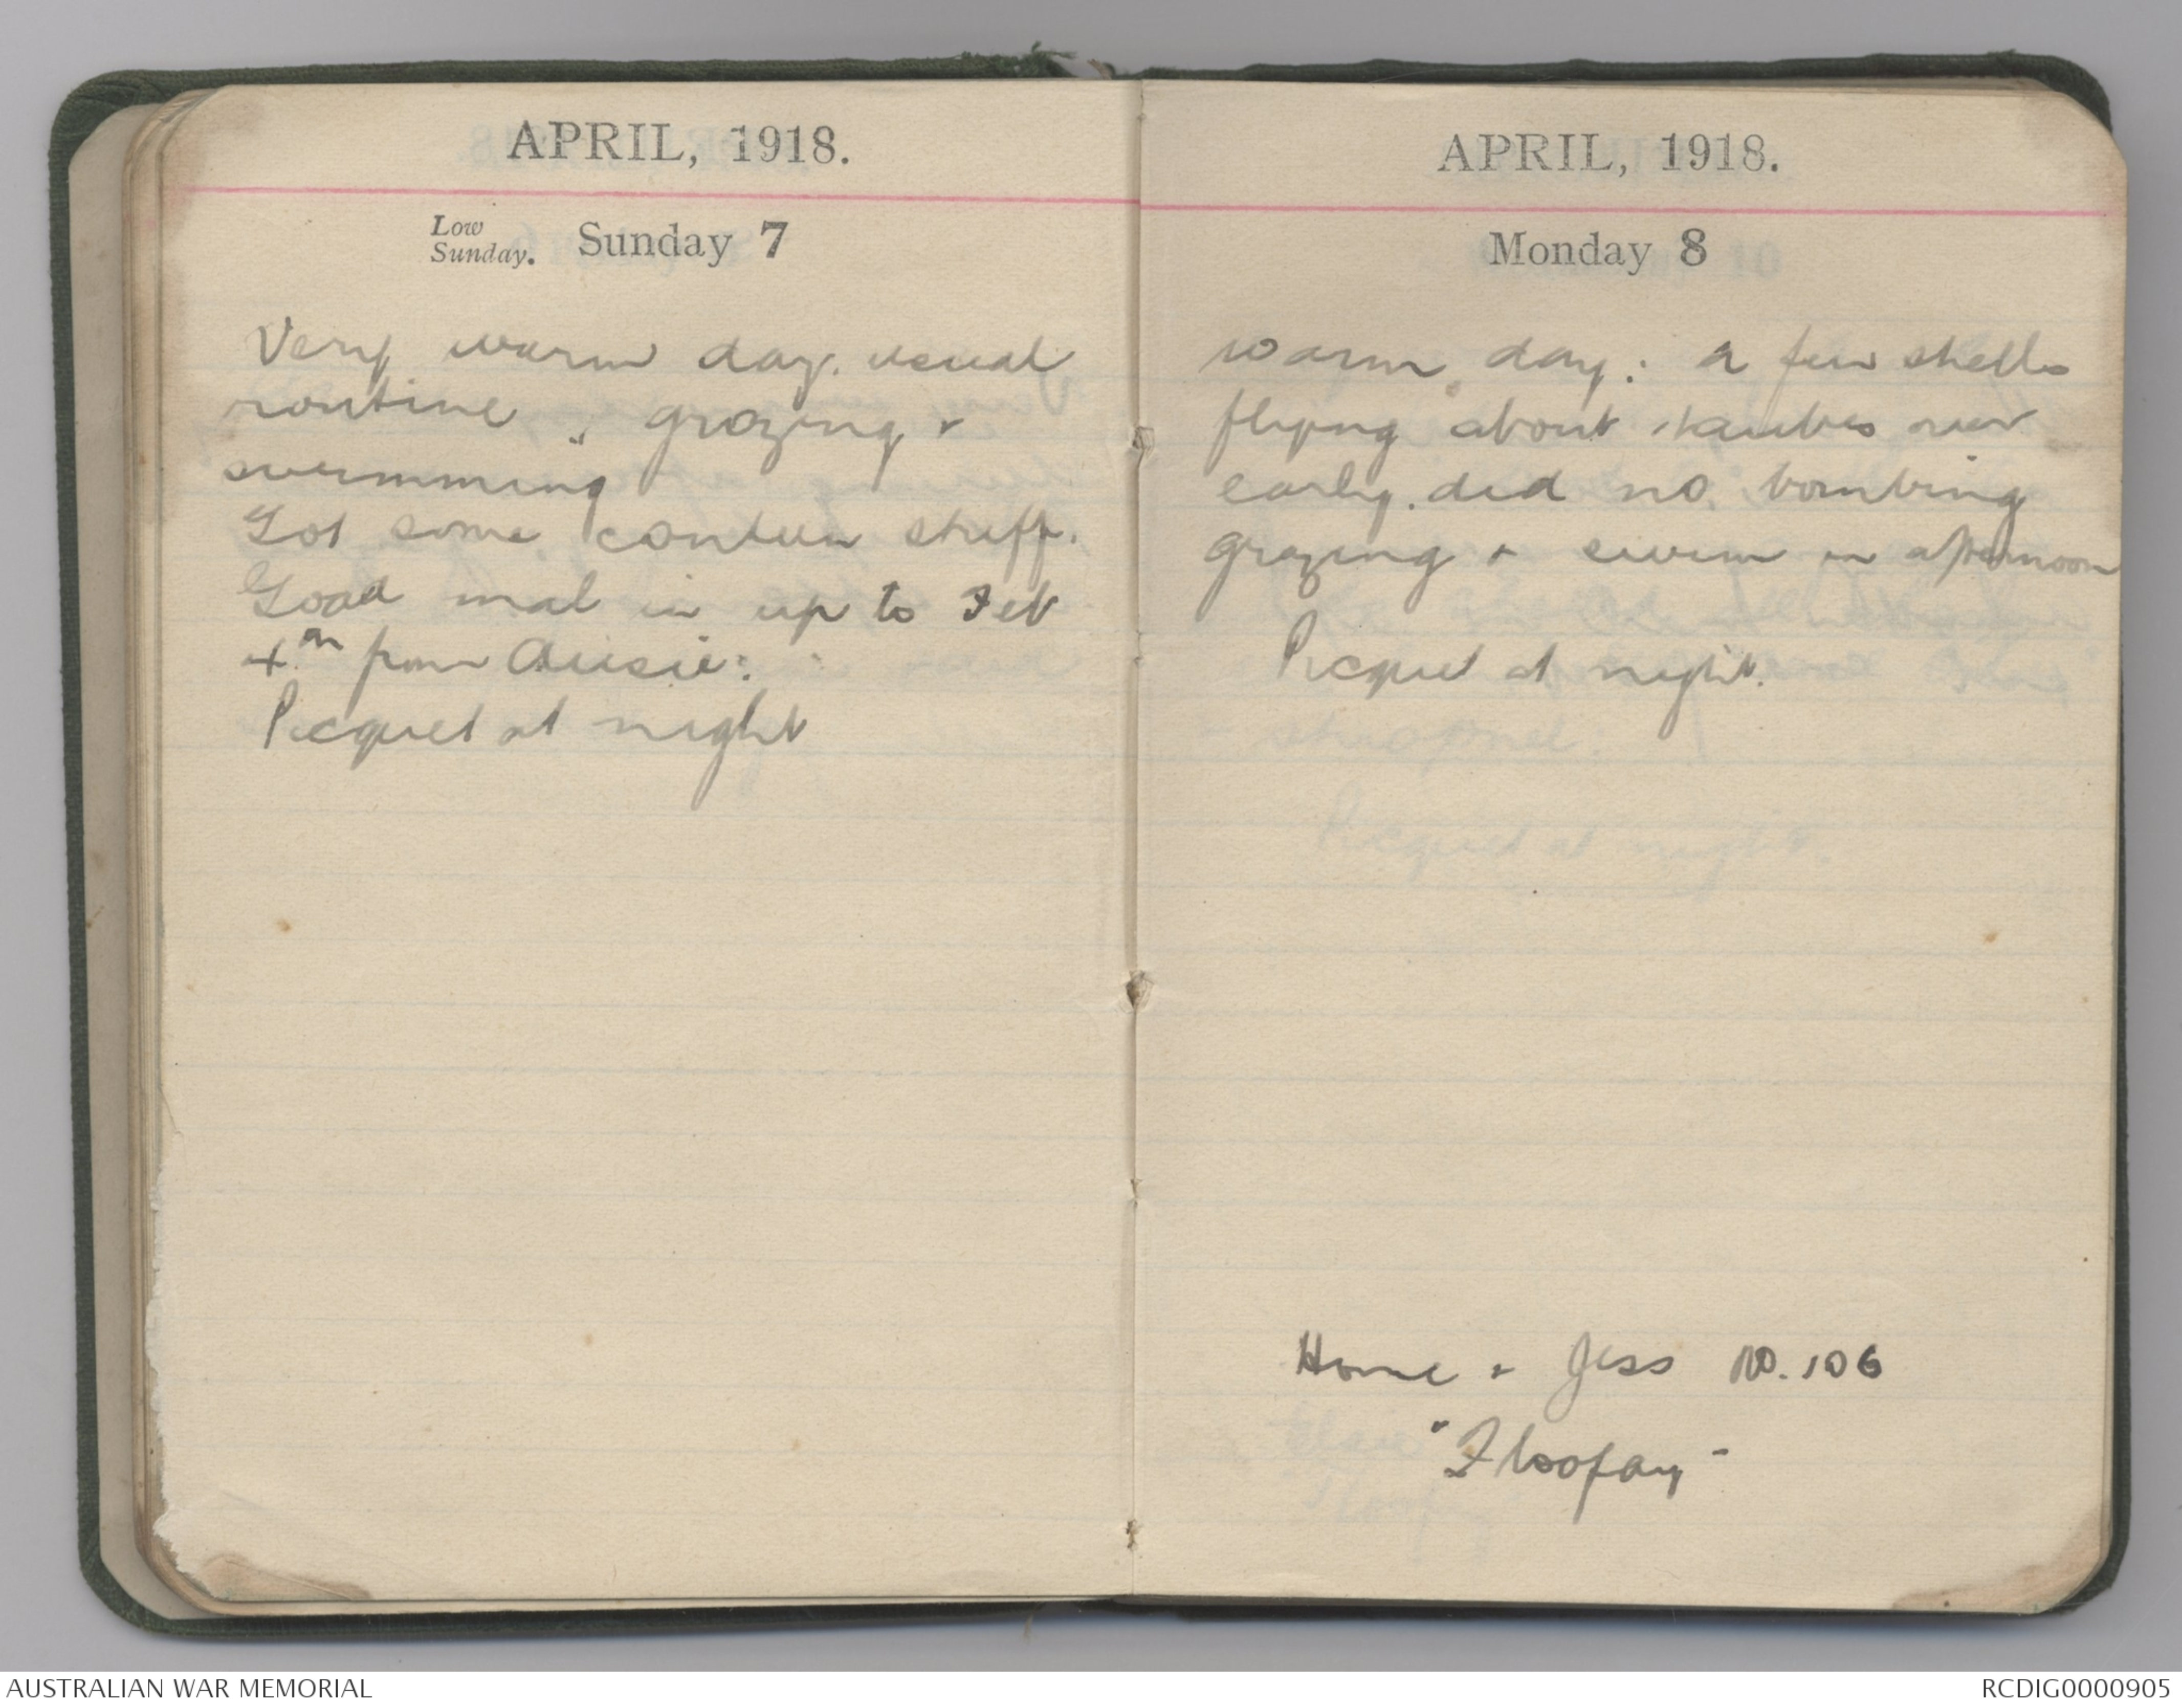 APRIL, 1918.
Low
Sunday. Sunday 7
Very warm day. usual
routine, grazing +
swimming
Got some canteen stuff.
Good mail in up to Feb
from Aussie:
Picquet at night
APRIL, 1918.
Monday 8
warm day: a few shells
flying about, taubes over
early. did no bombing
grazing + swim in afternoon
Picquet at night.
Home + Jess No. 106
AUSTRALIAN WAR MEMORIAL
RCDIG0000905